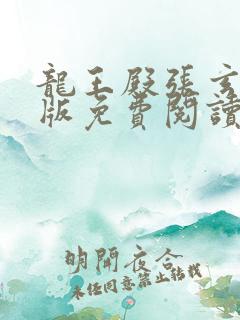 龍王殿張玄
版免費閱讀
明開夜合
未经同意禁止转载